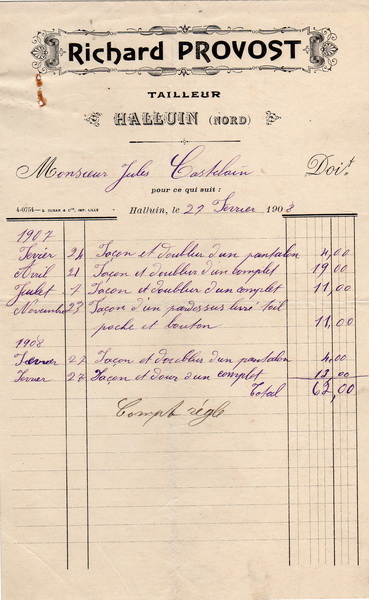 Richard PROVOST
TAILLEUR
HALLUIN (NORD)
Monsieur Jules Castelain Doit
pour ce qui suit :
Halluin, le 27 Fevrier 1908
1907
Fevrier 24 Façon et doublur d'un pantalon 4,00
Avril 21 Façon et doublur d'un complet 19,00
Juulet 7 Façon et doublur d'un complet 11,00
Novembre 23 Façon d'un pardessus livré toil
poche et bouton 11,00
1908
22 Façon et doublur d'un pantalon 4,00
Fevrier 27 Façon et dour d'un complet 13,00
Total 62,00
Compt réglé